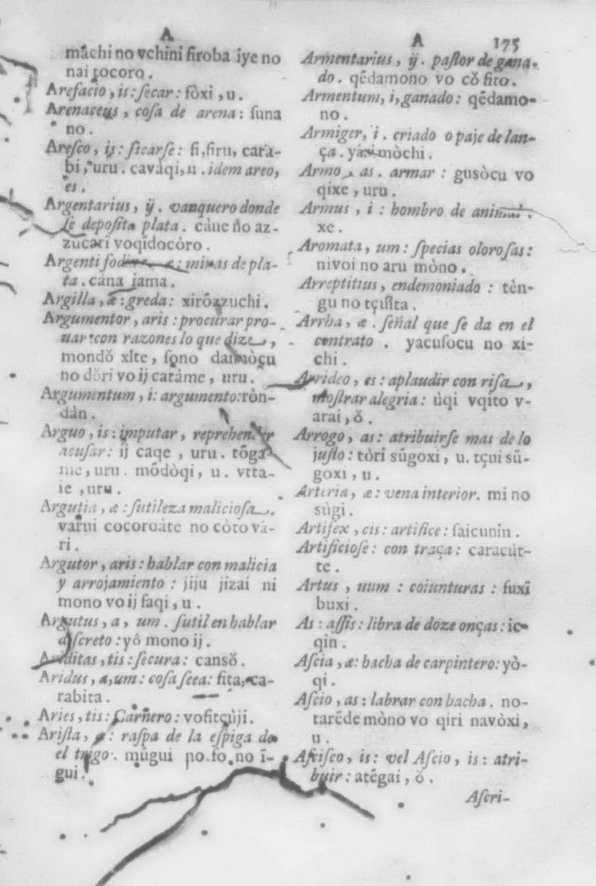 A
māchi no vchini firoba īye no
nai tocoro.
Aresacio, is: secar: sòxi, u.
Arenaceus, cosa de arena: suna
no.
Aresco, is: sicarse: fi, firu, cara-
bi, uru. cavàqi, u. idem areo,
es.
Argentarius, ÿ. vanquero donde
se deposita plata. càne no az-
zucari voqidocòro.
Argenti fodina, æ: minas de pla-
ta. càna jama.
Argilla, æ: greda: xirŏzzuchi.
Argumentor, aris: procurar pro-
uar con razones lo que dize,
mondŏ xite, sono
no dŏri vo ij caràme, uru.
Argumentum, i: argumento: rŏn-
dàn.
Arguo, is: imputar, reprehender
acusar: ij caqe, uru. tŏga
me, uru. mŏdòqi, u. vtta-
ie, uru.
Argutia, æ: sutileza maliciosa.
varui cocoroàte no còto va-
ri.
Argutor, aris: hablar con malicia
y arrojamiento: jiju jizai ni
mono vo ij faqi, u.
Argutus, a, um. sutil en hablar
discreto: yô mono ij.
Ariditas, tis: secura: cansŏ.
Aridus, a, um: cosa seca: fita, ca-
rabita.
Aries, tis: Carnero: vofitçùji.
Arista, æ: raspa de la espiga de
el trigo. mùgui no fo no ī-
gui.
A 175
Armentarius, ÿ. pastor de gana-
do. qēdamono vo cŏ fito.
Armentum, i, ganado: qēdamo-
no.
Armiger, i. criado o paje de lan-
ça. yari mòchi.
Armo, as. armar: gusòcu vo
qixe, uru.
Armus, i: hombro de animal.
xe.
Aromata, um: specias olorosas:
nivoi no aru mòno.
Arreptitius, endemoniado: tēn-
gu no tçuĩta.
Arrha, æ. señal que se da en el
contrato. yacusocu no xi-
chi.
Arrideo, es: aplaudir con risa,
mostrar alegria: ùqi vqito v-
arai, ŏ.
Arrogo, as: atribuirse mas de lo
justo: tòri sūgoxi, u. tçui sū-
goxi, u.
Arteria, æ: vena interior. mi no
sùgi.
Artifex, cis: artifice: saicunìn.
Artificiose: con traça: caracùt-
te.
Artus, uum: coiunturas: fuxi
buxi.
As: assis: libra de doze onças: ic-
qin.
Ascia, æ: hacha de carpintero: yò-
qi.
Ascio, as: labrar con hacha. no-
tarēde mòno vo qiri navòxi,
u.
Ascisco, is: vel Ascio, is: atri-
buir: atēgai, ŏ.
Ascri-